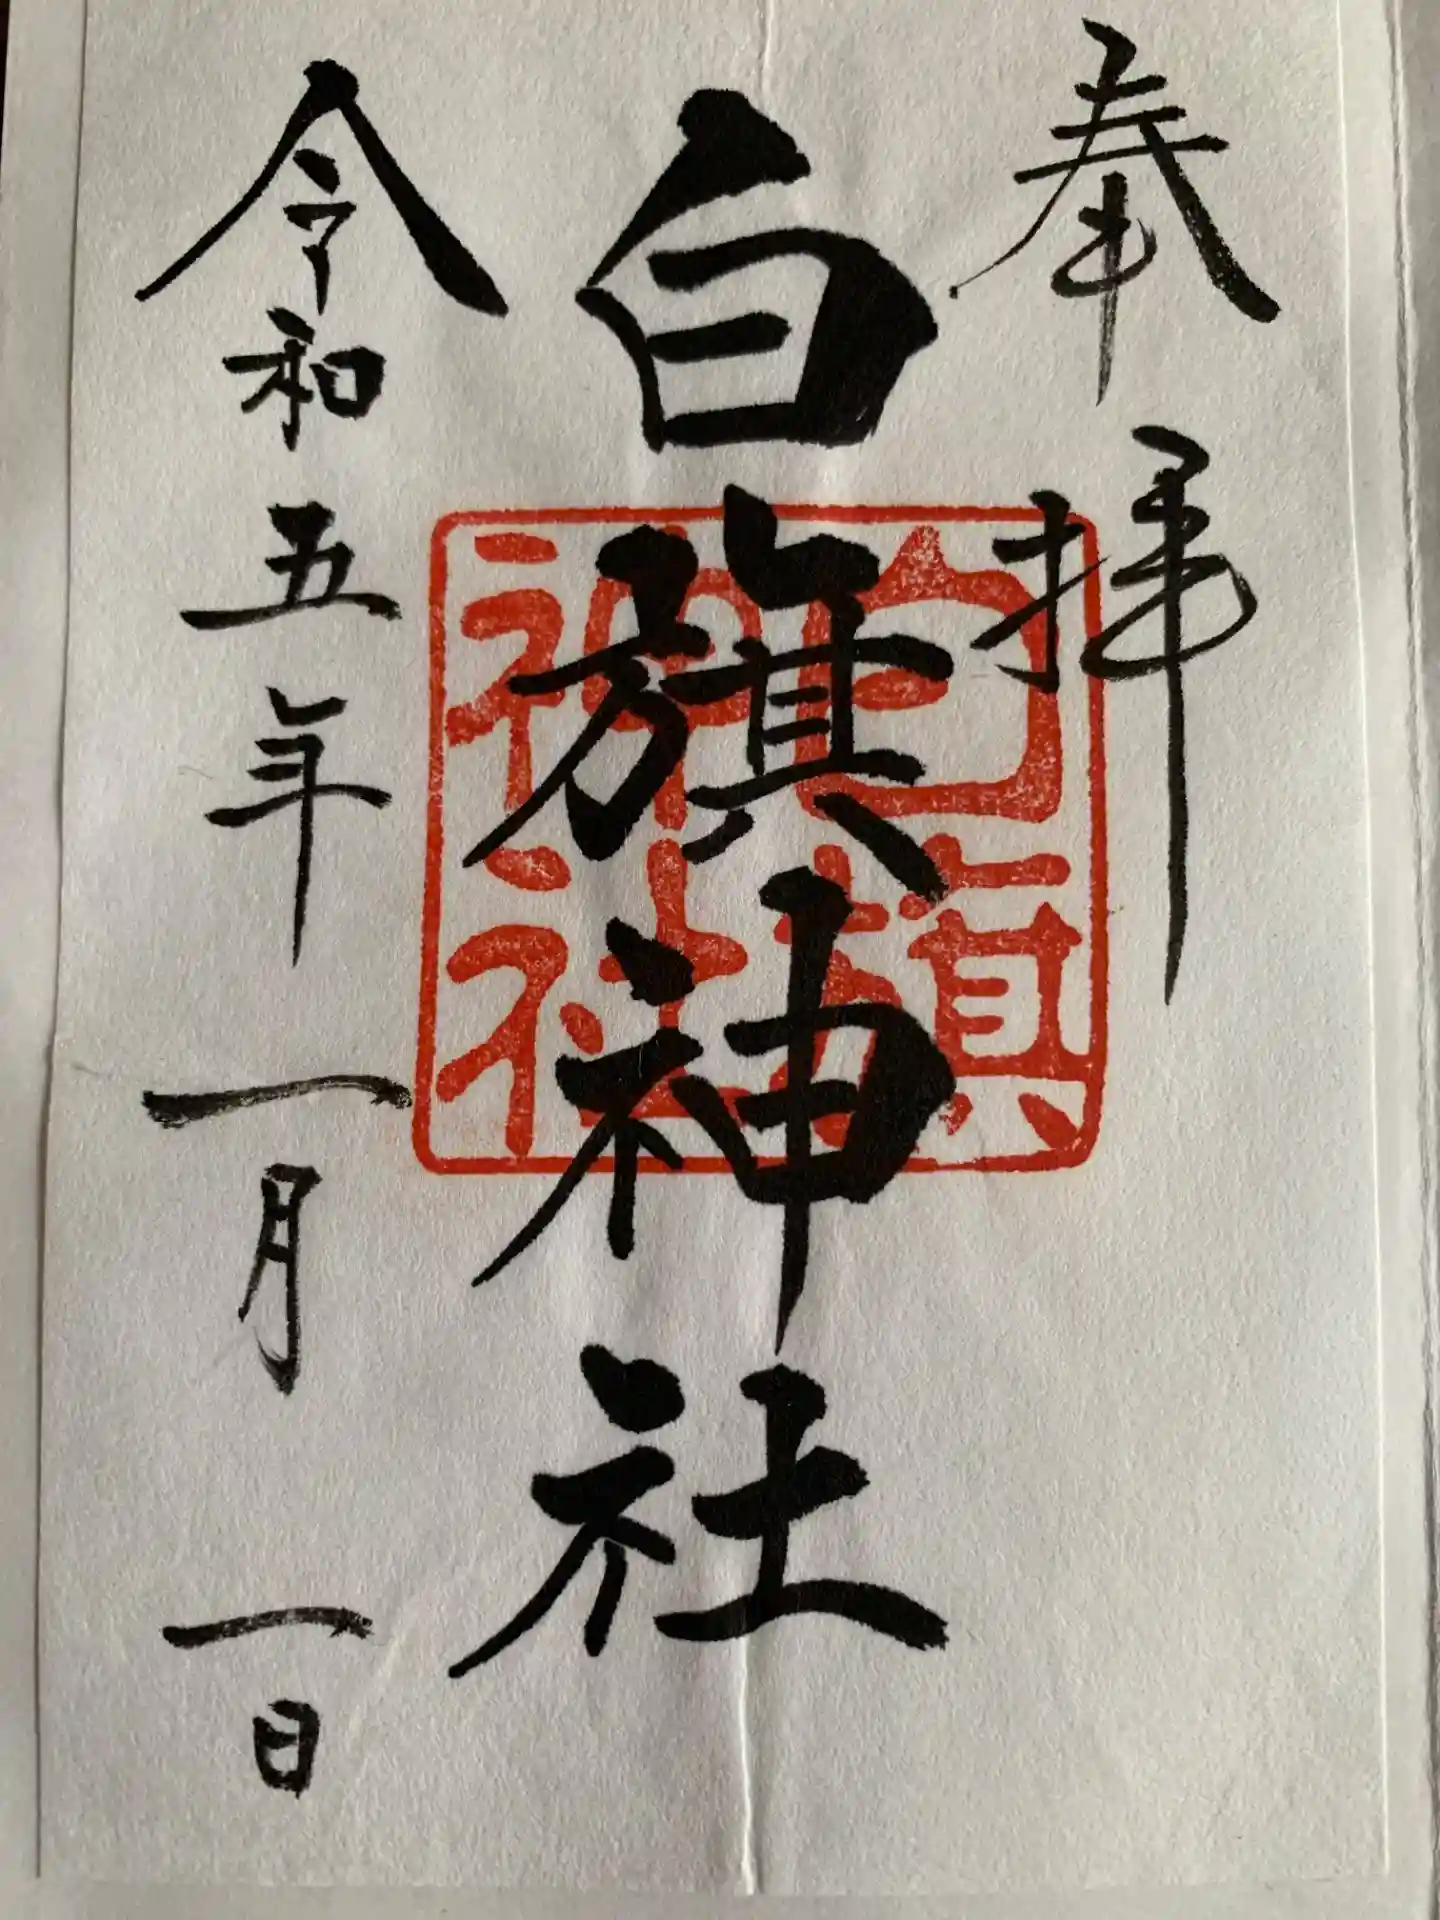 奉拝
白旗神社
白旗神社
令和五年一月一日